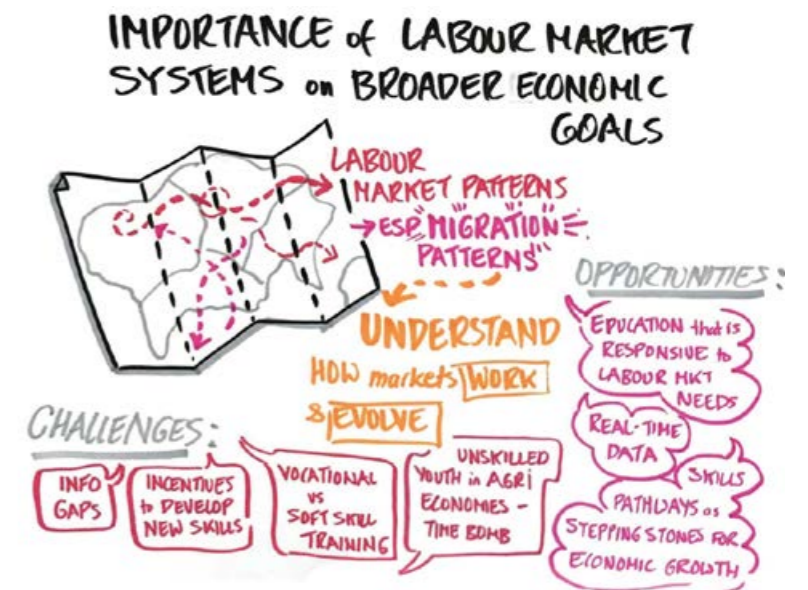 IMPORTANCE of LABOUR MARKET
SYSTEMS on BROADER ECONOMIC
GOALS
LABOUR
MARKET PATTERNS
→ ESP. "MIGRATION
PATTERNS"
UNDERSTAND
HOW markets WORK
& EVOLVE
CHALLENGES:
INFO
GAPS
INCENTIVES
to DEVELOP
NEW SKILLS
VOCATIONAL
vs
SOFT SKILL
TRAINING
UNSKILLED
YOUTH in AGRI
ECONOMIES –
TIME BOMB
OPPORTUNITIES:
EDUCATION that is
RESPONSIVE to
LABOUR MKT
NEEDS
REAL-TIME
DATA
SKILLS
PATHWAYS as
STEPPING STONES FOR
ECONOMIC GROWTH